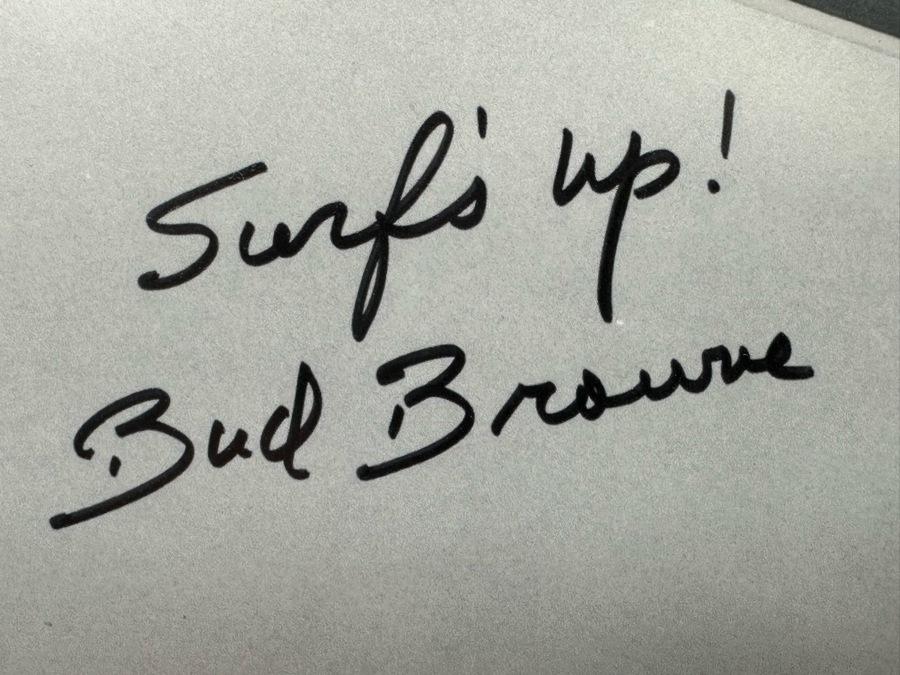 Surf's up!
Bud Browne